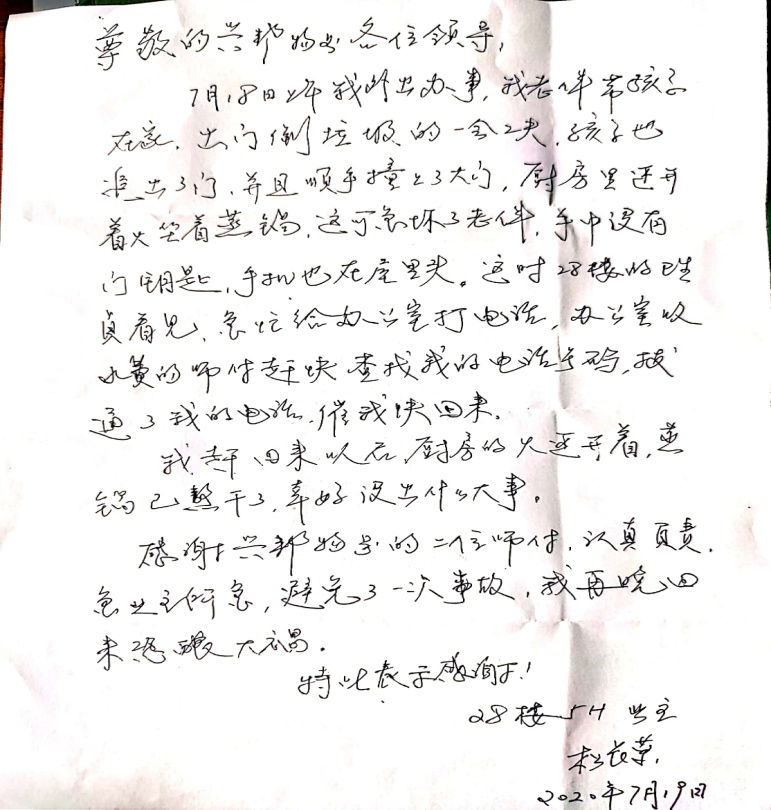 尊敬的兴邦物业各位领导，
7月18日上午我外出办事，我老伴带孩子
在家，出门倒垃圾的一会工夫，孩子也
跑出了门，并且顺手撞上了大门，厨房里还开
着火坐着蒸锅，这可急坏了老伴，手中没有
门钥匙，手机也在屋里头。这时28楼的
看见，急忙给办公室打电话，办公室收
水费的师付赶快查找我的电话号码，拨
通了我的电话，催我快回来。
我赶回来以后，厨房的火还开着，蒸
锅已熬干了，幸好没出什么大事。
感谢兴邦物业的二位师付，认真负责，
急业主所急，避免了一次事故，我再晚回
来恐酿大祸。
特此表示感谢！
28楼5H 业主
2020年7月19日